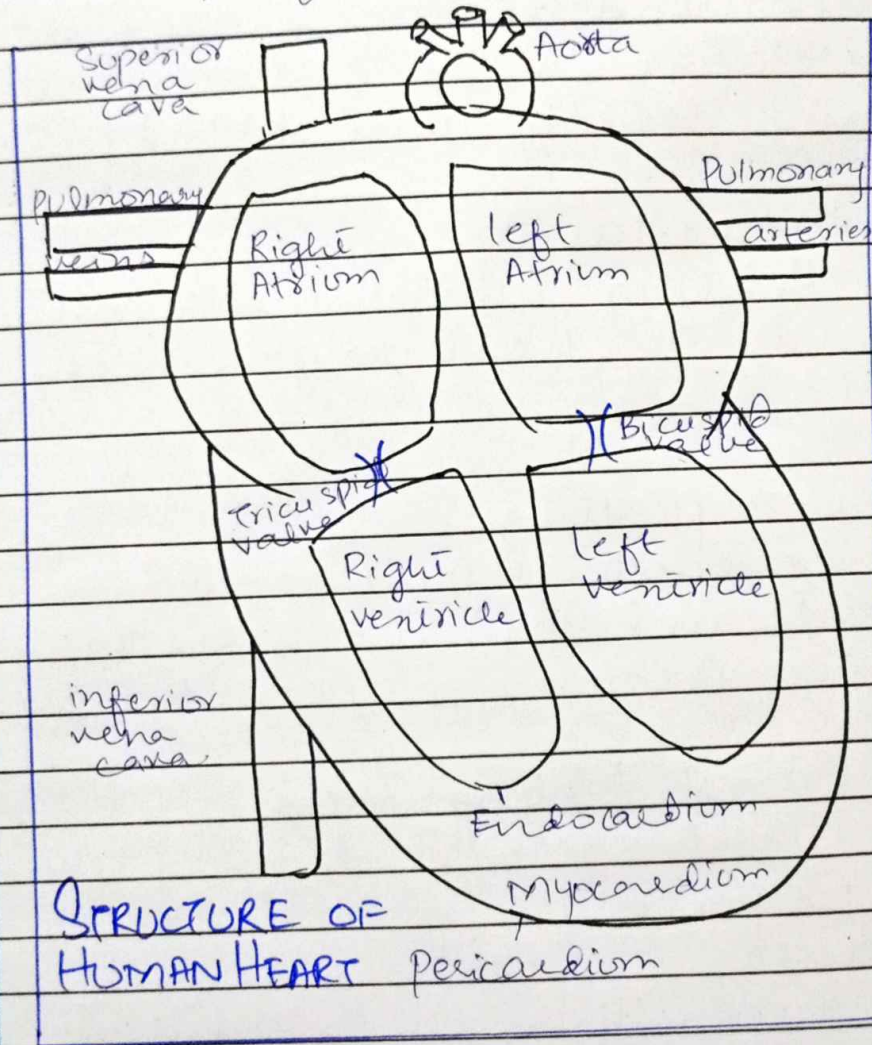 Superior
vena
cava
Aorta
Pulmonary
veins
Pulmonary
arteries
Right
Atrium
left
Atrium
Bicuspid
valve
Tricuspid
valve
Right
ventricle
left
ventricle
inferior
vena
cava
Endocardium
Myocardium
STRUCTURE OF
HUMAN HEART
Pericardium